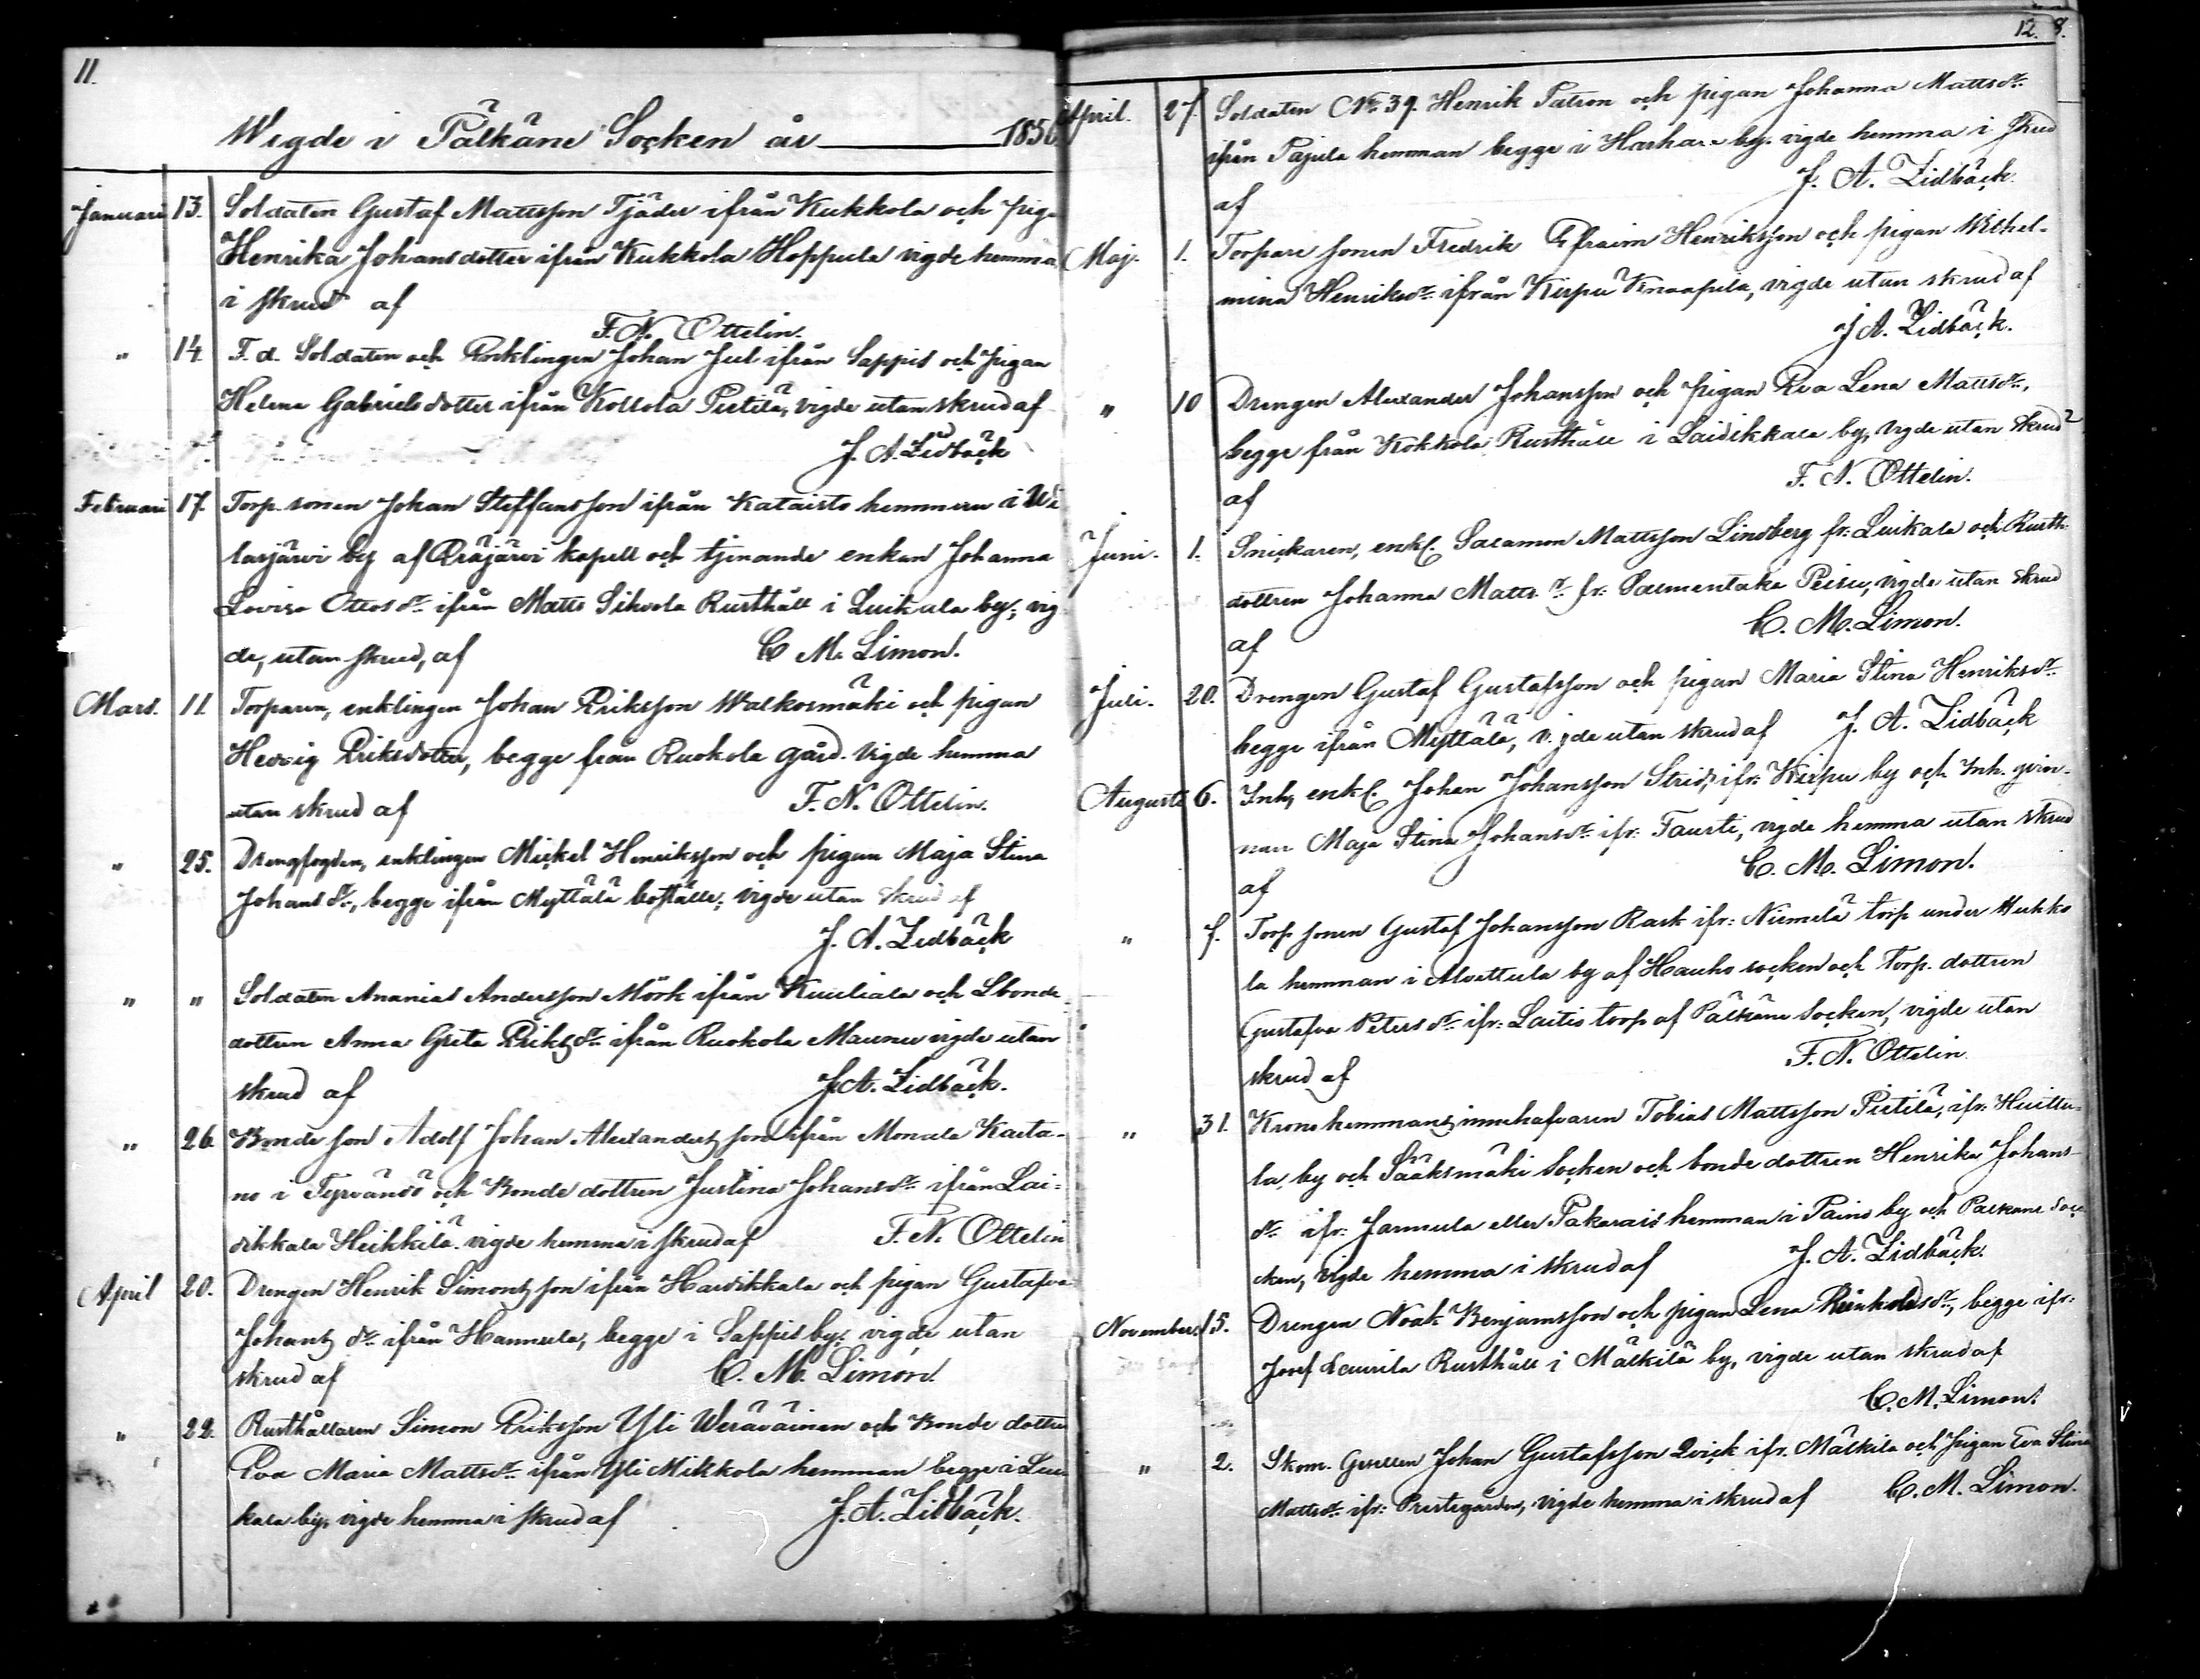 11.
Wigde i Pälkäne Socken år 1856
Januari 13. Soldaten Gustaf Mattsson Tjäder ifrån Kukkola och piga
Henrika Johansdotter ifrån Kukkola Hoppula vigde hemma
i skrud af
F. N. Ottelin.
" 14. F. d. Soldaten och Enklingen Johan Jul ifrån Sappis och Pigan
Helena Gabrielsdotter ifrån Kollola Pietilä, vigde utan skrud af
J. A. Lidbäck
Februari 17. Torp. sonen Johan Steffansson ifrån Kataisto hemman i Wi
lasjärvi by af Eräjärvi kapell och tjenande enkan Johanna
Lovisa Ottosdr. ifrån Matts Sihvola Rusthåll i Luikala by; vig
de, utan skrud, af C. M. Limon.
Mars. 11. Torparen, enklingen Johan Eriksson Walkosmäki och pigan
Hedvig Eriksdotter, begge från Ruokola gård. Vigde hemma
utan skrud af F. N. Ottelin.
" 25. Drengfogden, enklingen Mickel Henriksson och pigan Maja Stina
Johansdr., begge ifrån Myttälä boställe; vigde utan skrud af
J. A. Lidbäck
" " Soldaten Ananias Andersson Mörk ifrån Kuuliala och Lbonde
dottren Anna Greta Eriksdr. ifrån Ruokola Maunu vigde utan
skrud af J. A. Lidbäck.
" 26. Bonde son Adolf Johan Alexandersson ifrån Monaala Karta-
no i Tyrväntö och Bonde dottren Justina Johansdr. ifrån Lai-
dikkala Heikkilä. vigde hemma i skrud af F. N. Ottelin
April 20. Drengen Henrik Simonsson ifrån Haidikkala och pigan Gustafva
Johansdr. ifrån Hannula, begge i Sappis by; vigde, utan
skrud af C. M. Limon.
" 22. Rusthållaren Simon Eriksson Yli Weräväinen och Bonde dottre
Eva Maria Mattsdr. ifrån Yli Mikkola hemman begge i Lui
kala by; vigde hemma i skrud af J. A. Lidbäck.
12. 8.
April. 27. Soldaten No. 39. Henrik Patron och pigan Johanna Mattsdr.
ifrån Pajula hemman begge i Harhala by. vigde hemma i skrud
af J. A. Lidbäck.
Maj. 1. Torpare sonen Fredrik Efraim Henriksson och pigan Wilhel-
mina Henriksdr. ifrån Kirpu Knaapila, vigde utan skrud af
J. A. Lidbäck.
" 10 Drengen Alexander Johansson och pigan Eva Lena Mattsdr.,
begge från Kokkola Rusthåll i Laidikkala by, Vigde utan skrud
af F. N. Ottelin.
Juni. 1. Snickaren, enkl. Salamon Mattsson Lindberg fr. Luikala och Rusth.
dottren Johanna Matts dr. fr. Salmentaka Peisu, vigde utan skrud
af C. M. Limon.
Juli. 20. Drengen Gustaf Gustafsson och pigan Maria Stina Henriksdr.
begge ifrån Myttälä, vigde utan skrud af J. A. Lidbäck
Augusti 6. Inh, enkl. Johan Johansson Strid, ifr. Kirpu by och Inh. qvin-
nan Maja Stina Johansdr. ifr: Tausti, vigde hemma utan skrud
af C. M. Limon.
" f. Torp sonen Gustaf Johansson Rask ifr: Niemelä torp under Uukko
la hemman i Alvettula by af Hauho socken och Torp. dottren
Gustafva Peters dr. ifr: Laitis torp af Pälkäne Socken, vigde utan
skrud af F. N. Ottelin.
" 31. Kronohemmansinnehafvaren Tobias Mattsson Pietilä, ifr. Huittu-
la by och Sääksmäki Socken och bonde dottren Henrika Johans-
dr. ifr: Jarmula eller Pakarais hemman i Paino by och Pälkäne Soc
cken, vigde hemma i skrud af J. A. Lidbäck.
November 15. Drengen Noak Benjamsson och pigan Lena Reinholdsdr., begge ifr:
Josef Laurila Rusthåll i Mälkilä by, vigde utan skrud af
C. M. Limon.
" 2. Skom. Gesellen Johan Gustafsson Qvick ifr. Mälkilä och Pigan Eva Stina
Mattsdr. ifr: Prestegården, vigde hemma i skrud af C. M. Limon.